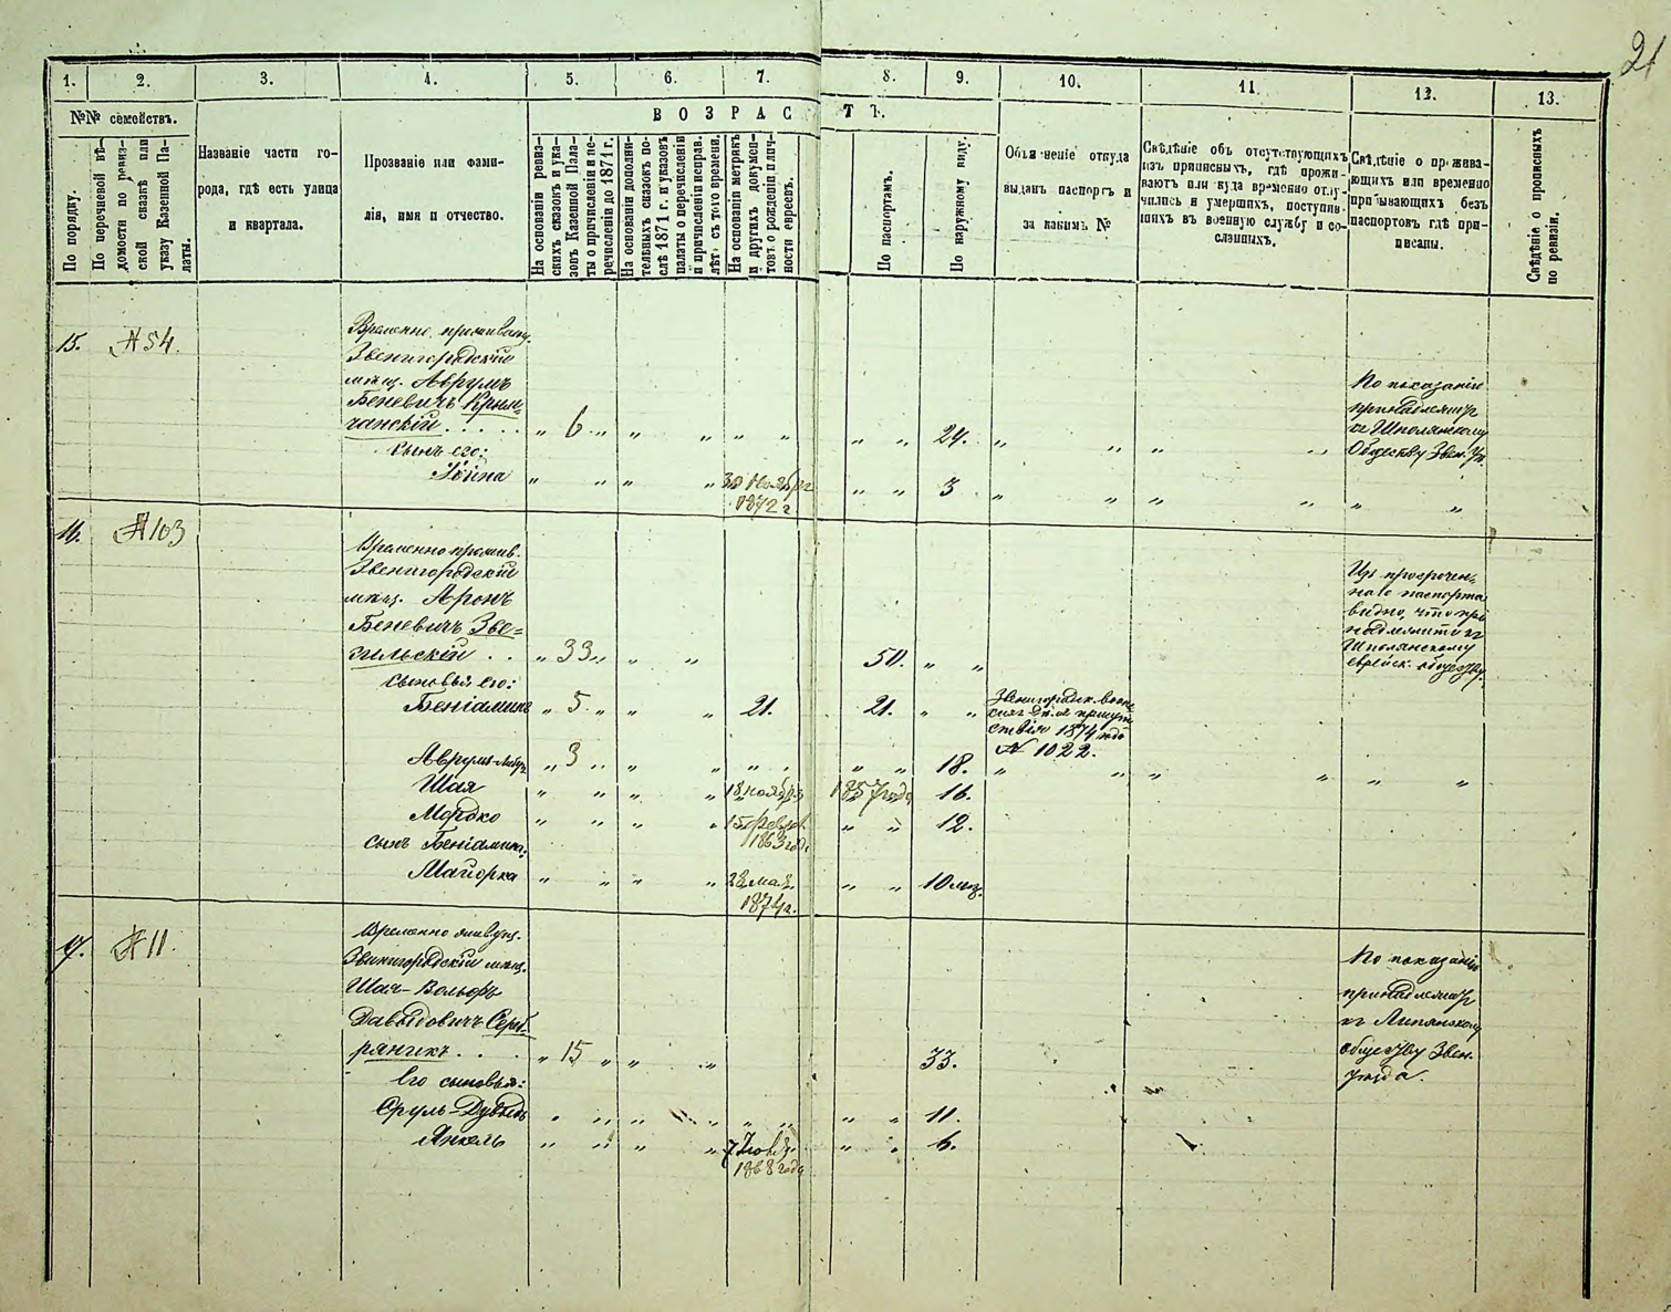 21
1. 2. 3. 4. 5. 6. 7. 8. 9. 10. 11. 12. 13.
№№ семействъ.
По порядку.
По перечневой вѣ-
домости по ревиз-
ской сказкѣ или
указу Казенной Па-
латы.
Названіе части го-
рода, гдѣ есть улица
и квартала.
Прозваніе или фами-
лія, имя и отчество.
ВОЗРАСТЪ.
На основаніи ревиз-
скихъ сказокъ и ука-
зовъ Казенной Пала-
ты о причисленіи и пе-
речисленіи до 1871 г.
На основаніи дополни-
тельныхъ сказокъ по-
слѣ 1871 г. и указовъ
палаты о перечисленіи
и причисленіи исправ.
лѣтъ съ того времени.
На основаніи метрикъ
и другихъ докумен-
товъ о рожденіи лич-
ности евреевъ.
По паспортамъ.
По наружному виду.
Объясненіе откуда
выданъ паспортъ и
за какимъ №
Свѣдѣніе объ отсутствующихъ
изъ приписныхъ, гдѣ прожи-
ваютъ или куда временно отлу-
чились и умершихъ, поступив-
шихъ въ военную службу и со-
сланныхъ.
Свѣдѣніе о прожива-
ющихъ или временно
прибывающихъ безъ
паспортовъ гдѣ при-
писаны.
Свѣдѣніе о прописныхъ
по ревизіи.
15. № 54.
Временно прожив.
Звенигородскій
мѣщ. Аврумъ
Беневичъ Крым-
чанскій . . . . . " 6 " " " " " " " 24. " " " "
По показанію
принадлежитъ
къ Шполянскому
Обществу Звен. У.
сынъ его:
Іойна " " " " 30 Ноября " " 3 " " " " " "
1872 г.
16. № 103
Временно прожив.
Звенигородскій
мѣщ. Аронъ
Беневичъ Зве-
гильскій . . " 33 " " " 50. " "
Изъ просрочен-
наго паспорта
видно, что при-
надлежитъ къ
Шполянскому
еврейск. обществу.
сыновья его:
Беніаминъ " 5 " " " 21. 21. " "
Звенигородск. воин-
ствія 1874 года
№ 1022.
Аврумъ- " 3 " " " " " " " 18. " " " " " "
Шая " " " " 18 ноября 1857 года 16.
Мордко " " " " 15 феврал. " " 12.
1863 год.
сынъ Беніамина:
Майорка " " " " 28 мая " " 10 мѣс.
1874 г.
17. № 11.
Временно живущ.
Звенигородскій мѣщ.
Шая-Вольфъ
Давыдовичъ Сереб-
ряникъ . . . " 15 " " " 33.
По показанію
принадлежитъ
къ Липянскому
обществу Звен.
Уѣзда.
Его сыновья:
Сруль-Дувыдъ " " " " " " " " 11.
Янкель " " " " 7 " " 6.
1868 года